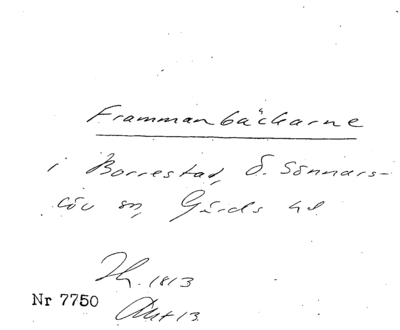 Frammanbäckarne
i Borrestad, Ö. Sönnars-
löv sn, Gärds hd
1813
Nr 7750